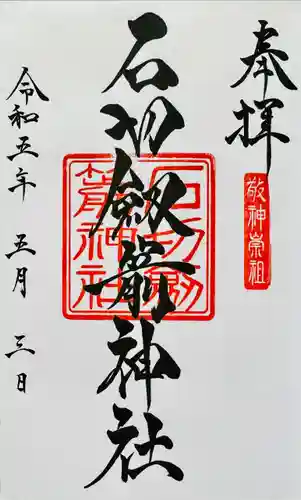 奉拝
敬神崇祖
石切劔箭神社
石切劔箭神社
令和五年 五月 三日